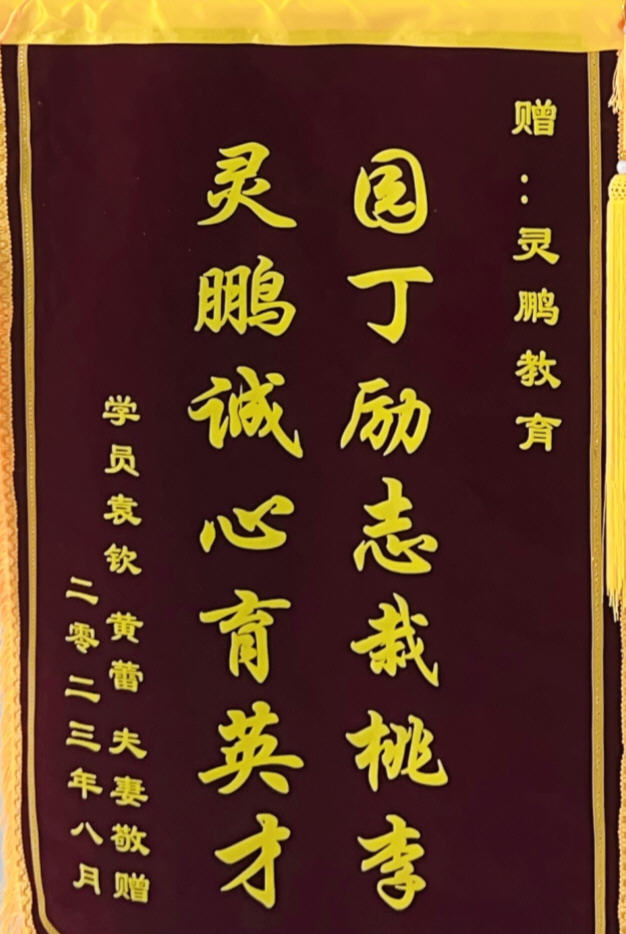 赠：灵鹏教育
园丁励志栽桃李
灵鹏诚心育英才
学员袁钦 黄蕾 夫妻敬赠
二零二三年八月